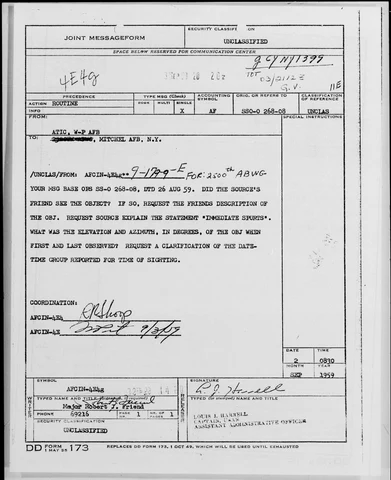 JOINT MESSAGEFORM
SECURITY CLASSIFICATION
UNCLASSIFIED
SPACE BELOW RESERVED FOR COMMUNICATION CENTER
4E4g
PRECEDENCE
TYPE MSG (Check)
ACCOUNTING SYMBOL
ORIG. OR REFERS TO
CLASSIFICATION OF REFERENCE
ACTION ROUTINE
BOOK MULTI SINGLE
INFO
X AF SSO-O 268-08 UNCLAS
FROM:
SPECIAL INSTRUCTIONS
ATIC, W-P AFB
TO:
MITCHEL AFB, N.Y.
/UNCLAS/FROM: AFCIN-4E4g 9-1799-E FOR: 2500th ABWG
YOUR MSG BASE OPS SS-O 268-08, DTD 26 AUG 59. DID THE SOURCE'S
FRIEND SEE THE OBJECT? IF SO, REQUEST THE FRIENDS DESCRIPTION OF
THE OBJ. REQUEST SOURCE EXPLAIN THE STATEMENT "IMMEDIATE SPURTS".
WHAT WAS THE ELEVATION AND AZIMUTH, IN DEGREES, OF THE OBJ WHEN
FIRST AND LAST OBSERVED? REQUEST A CLARIFICATION OF THE DATE-
TIME GROUP REPORTED FOR TIME OF SIGHTING.
COORDINATION:
AFCIN-4E4
AFCIN-4E
DATE TIME
2 0830
MONTH YEAR
SEP 1959
SYMBOL
AFCIN-4E4g
SIGNATURE
TYPED NAME AND TITLE
Major Robert J. Friend
TYPED NAME AND TITLE
PHONE 69216
PAGE NO. 1 NO. OF PAGES 1
SECURITY CLASSIFICATION
UNCLASSIFIED
CAPTAIN, USAF
ASSISTANT ADMINISTRATIVE OFFICER
DD FORM 173
1 MAY 55
REPLACES DD FORM 173, 1 OCT 49, WHICH WILL BE USED UNTIL EXHAUSTED